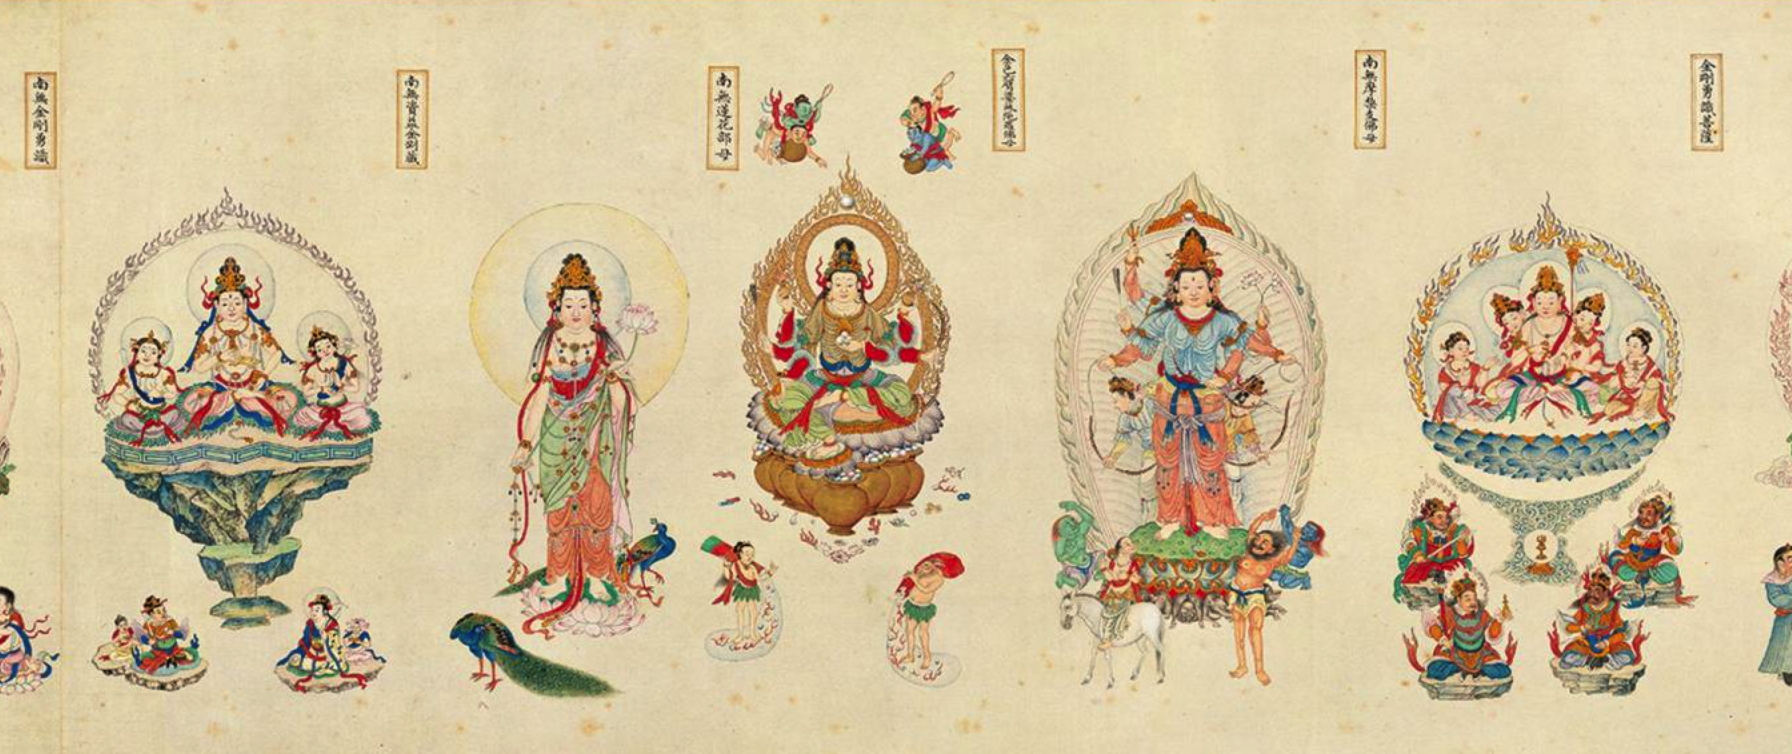 金剛勇識菩薩
南無摩梨支佛母
佛母
南無蓮花部母
南無資益金剛藏
南無金剛勇識